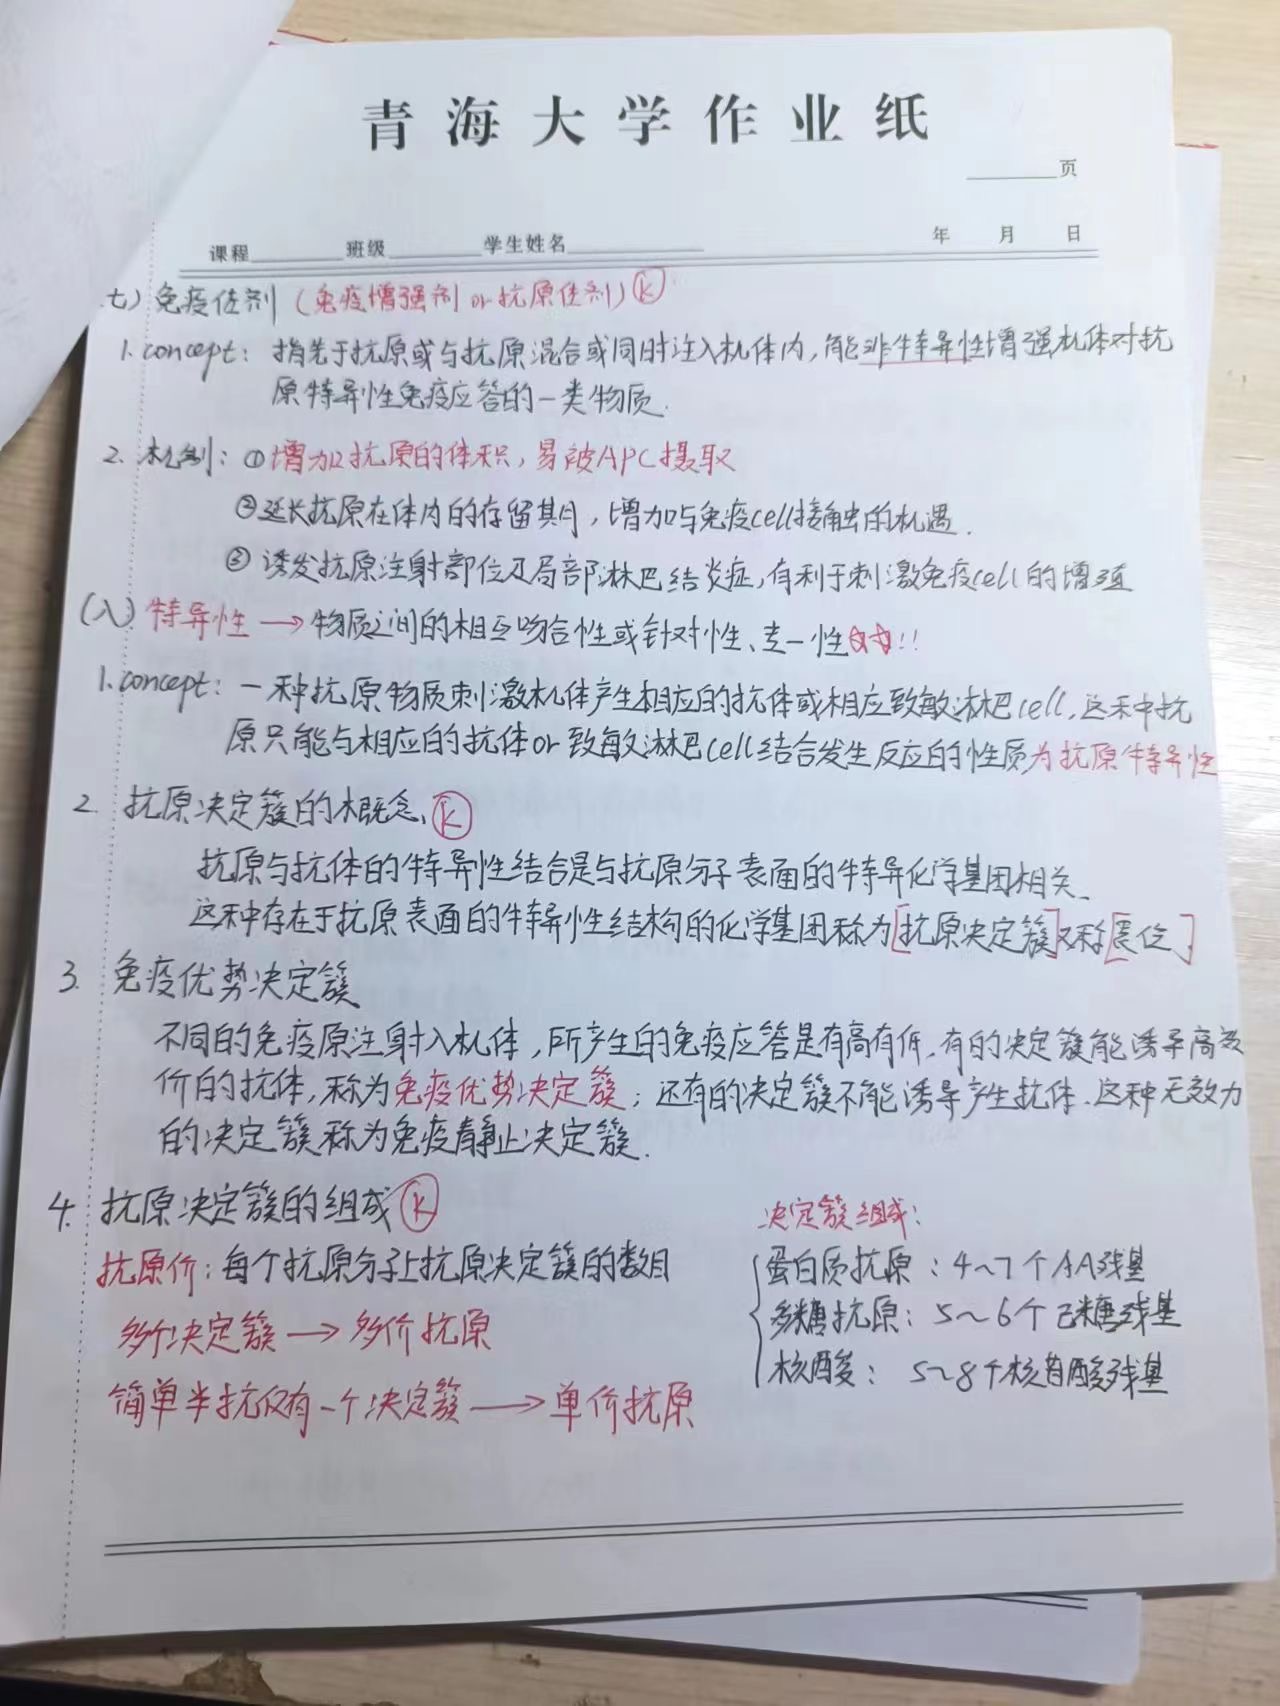 青海大学作业纸
页
课程 班级 学生姓名 年 月 日
七) 免疫佐剂 (免疫增强剂 or 抗原佐剂) K
1. concept: 指先于抗原或与抗原混合或同时注入机体内, 能非特异性增强机体对抗
原特异性免疫应答的一类物质.
2. 机制: ①增加抗原的体积, 易被APC摄取
②延长抗原在体内的存留期, 增加与免疫cell接触的机遇.
③ 诱发抗原注射部位及局部淋巴结炎症, 有利于刺激免疫cell的增殖
(八) 特异性 → 物质之间的相互吻合性或针对性、专一性☆☆!!
1. concept: 一种抗原物质刺激机体产生相应的抗体或相应致敏淋巴cell, 这种抗
原只能与相应的抗体or致敏淋巴cell结合发生反应的性质为抗原特异性
2. 抗原决定簇的概念. K
抗原与抗体的特异性结合是与抗原分子表面的特异化学基团相关.
这种存在于抗原表面的特异性结构的化学基团称为[抗原决定簇]又称[表位]
3. 免疫优势决定簇
不同的免疫原注射入机体, 所产生的免疫应答是有高有低, 有的决定簇能诱导高效
价的抗体, 称为免疫优势决定簇; 还有的决定簇不能诱导产生抗体. 这种无效力
的决定簇称为免疫静止决定簇.
4. 抗原决定簇的组成 K
抗原价: 每个抗原分子上抗原决定簇的数目
多个决定簇 → 多价抗原
简单半抗仅有一个决定簇 → 单价抗原
决定簇组成:
蛋白质抗原: 4~7个AA残基
多糖抗原: 5~6个己糖残基
核酸: 5~8个核苷酸残基